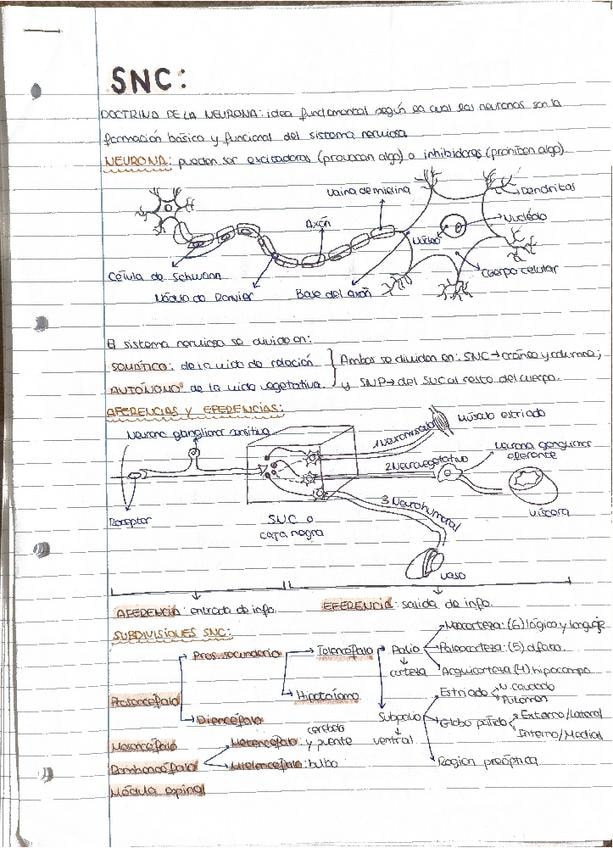 SNC:
DOCTRINA DE LA NEURONA: idea fundamental según la cual las neuronas son la
formación básica y funcional del sistema nervioso
NEURONA: pueden ser excitadoras (provocan algo) o inhibidoras (prohiben algo)
Vaina de mielina
Dendritas
Axón
Nucléolo
Núcleo
Célula de Schwann
Cuerpo celular
Nódulo de Ranvier
Base del axón
El sistema nervioso se divide en:
SOMÁTICO: de la vida de relación
AUTÓNOMO: de la vida vegetativa.
Ambos se dividen en: SNC → cráneo y columna;
y SNP → del SNC al resto del cuerpo.
AFERENCIAS Y EFERENCIAS:
Músculo estriado
Neurona ganglionar sensitiva
1 Neuromuscular
Neurona ganglionar
eferente
2 Neurovegetativo
3 Neurohumoral
Receptor
SNC o
caja negra
víscera
vaso
AFERENCIA: entrada de info.
EFERENCIA: salida de info.
SUBDIVISIONES SNC:
Prosencéfalo
Pros. secundario
Diencéfalo
Telencéfalo
Hipotálamo
Palio
corteza
Neocorteza: (6) lógica y lenguaje
Paleocorteza: (5) olfato.
Arquicorteza (4) hipocampo.
Subpalio
ventral
Estriado
N. caudado
Putamen
Globo pálido
Externo/Lateral
Interno/Medial
Región preóptica
Mesencéfalo
Rombencéfalo
Metencéfalo: cerebelo
y puente
Mielencéfalo: bulbo
Médula espinal